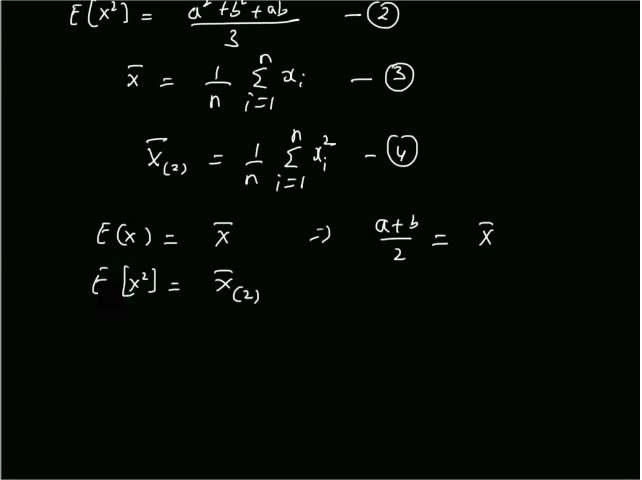 E[x²] = a²+b²+ab / 3 — ②
x̄ = 1/n Σ_{i=1}^{n} x_i — ③
x̄_(2) = 1/n Σ_{i=1}^{n} x_i² — ④
E(x) = x̄ ⇒ a+b / 2 = x̄
E[x²] = x̄_(2)